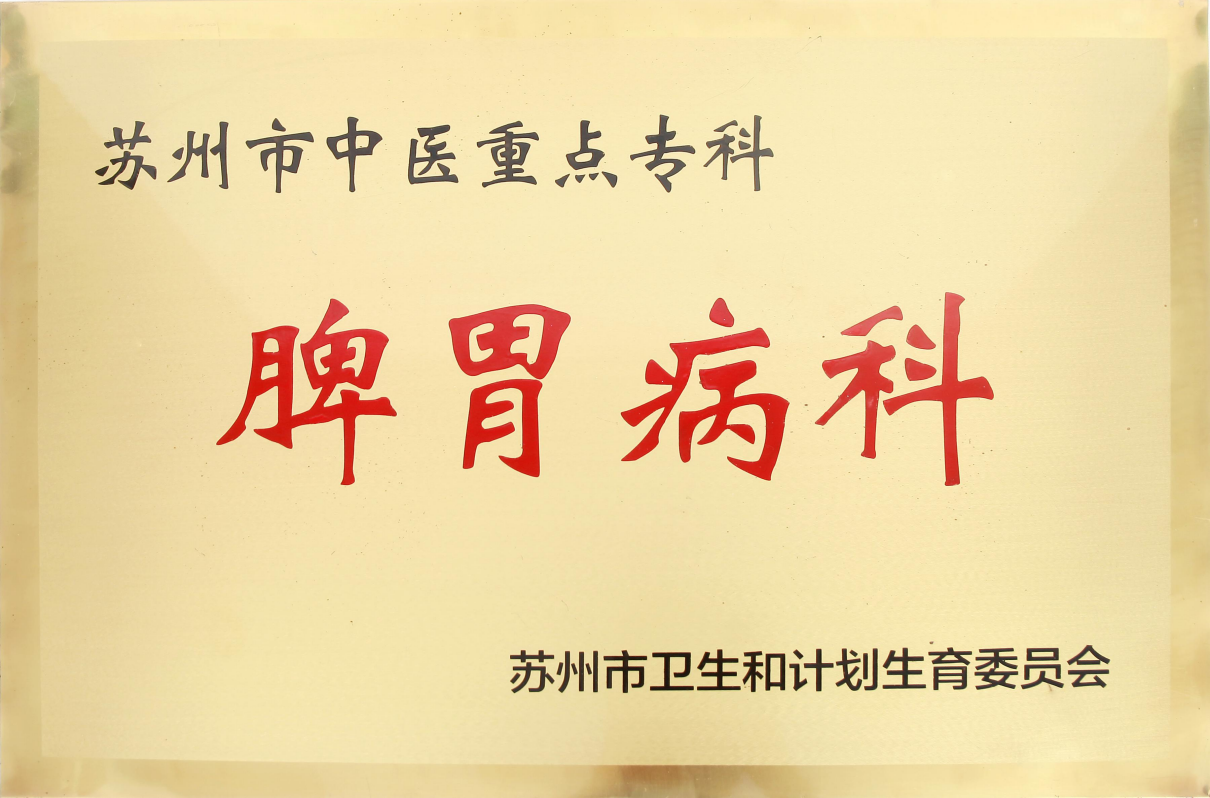 苏州市中医重点专科
脾胃病科
苏州市卫生和计划生育委员会